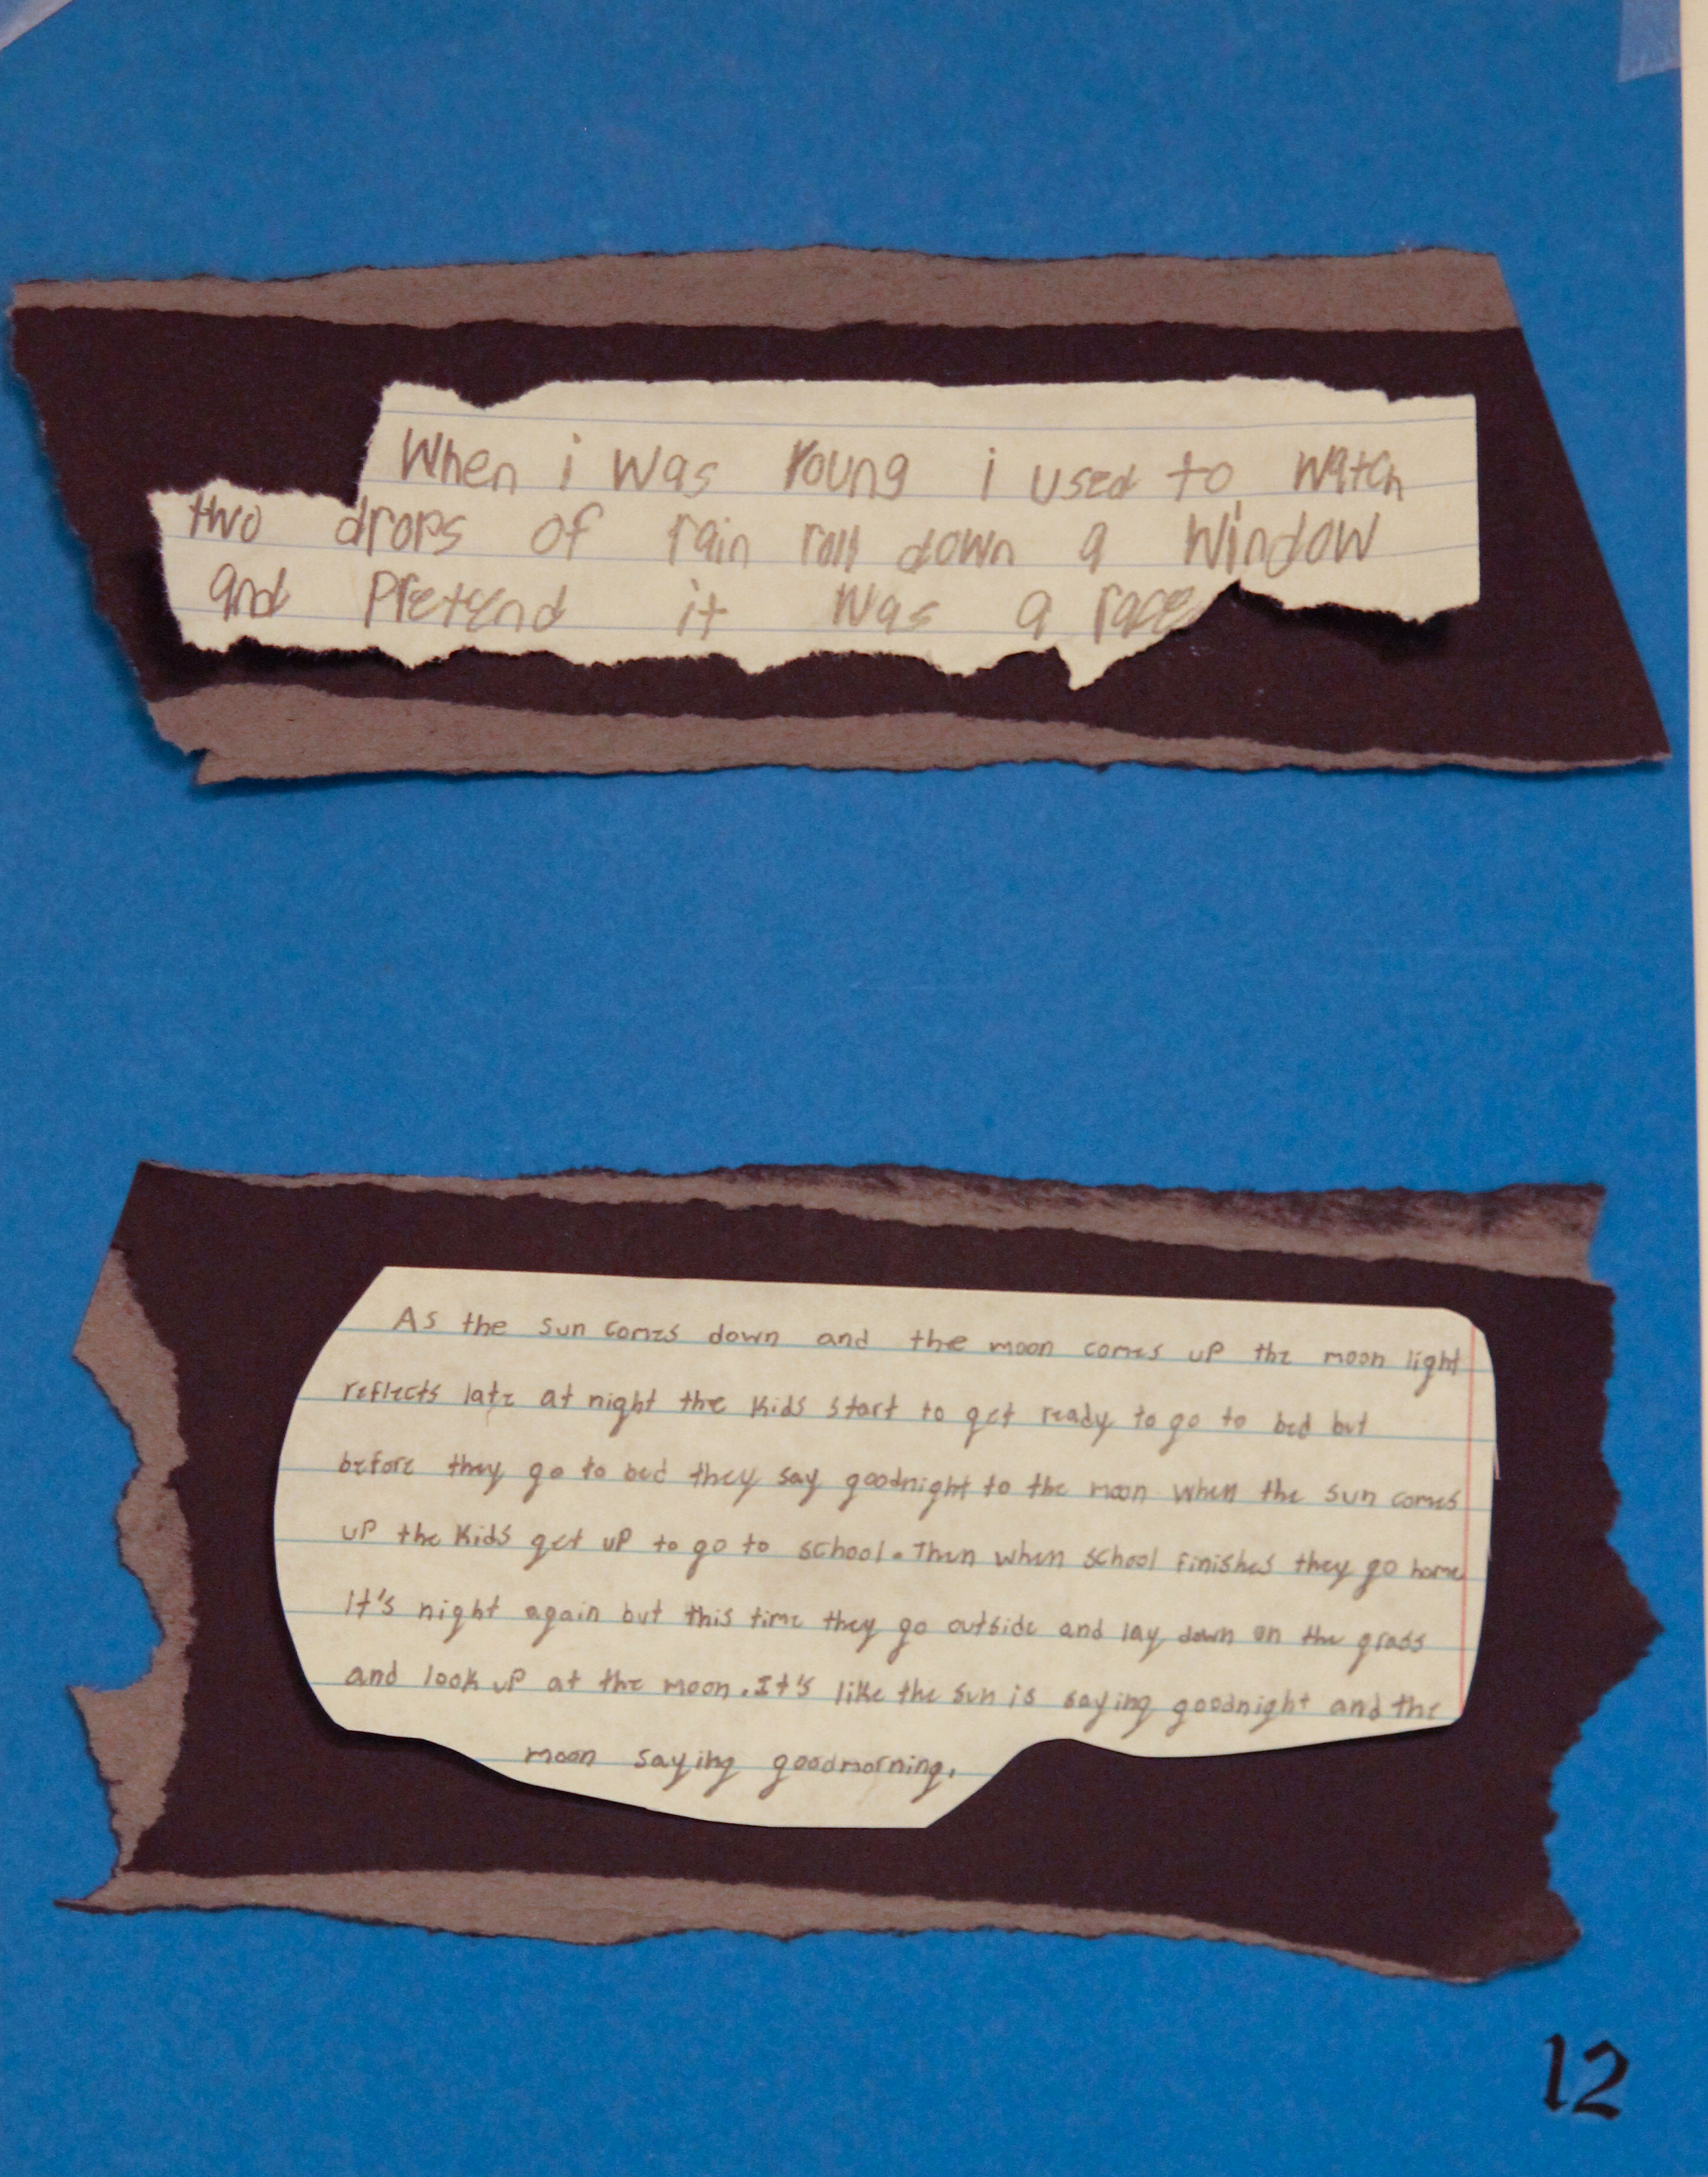 When i was Young i used to watch
two drops of rain roll down a window
and Pretend it was a race
As the sun comes down and the moon comes up the moon light
reflects late at night the kids start to get ready to go to bed but
before they go to bed they say goodnight to the moon when the sun comes
up the kids get up to go to school. Then when school finishes they go home
It's night again but this time they go outside and lay down on the grass
and look up at the moon. It's like the sun is saying goodnight and the
moon saying goodmorning.
12